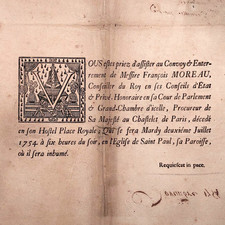 VOUS estes priez d'assister au Convoy & Enter-
rement de Messire François MOREAU,
Conseiller du Roy en ses Conseils d'Etat
& Privé, Honoraire en sa Cour de Parlement
& Grand-Chambre d'icelle, Procureur de
Sa Majesté au Chastelet de Paris, décedé
en son Hostel Place Royale; Qui se fera Mardy deuxiéme Juillet
1754. à six heures du soir, en l'Eglise de Saint Paul, sa Paroisse,
où il sera inhumé.
Requiescat in pace.